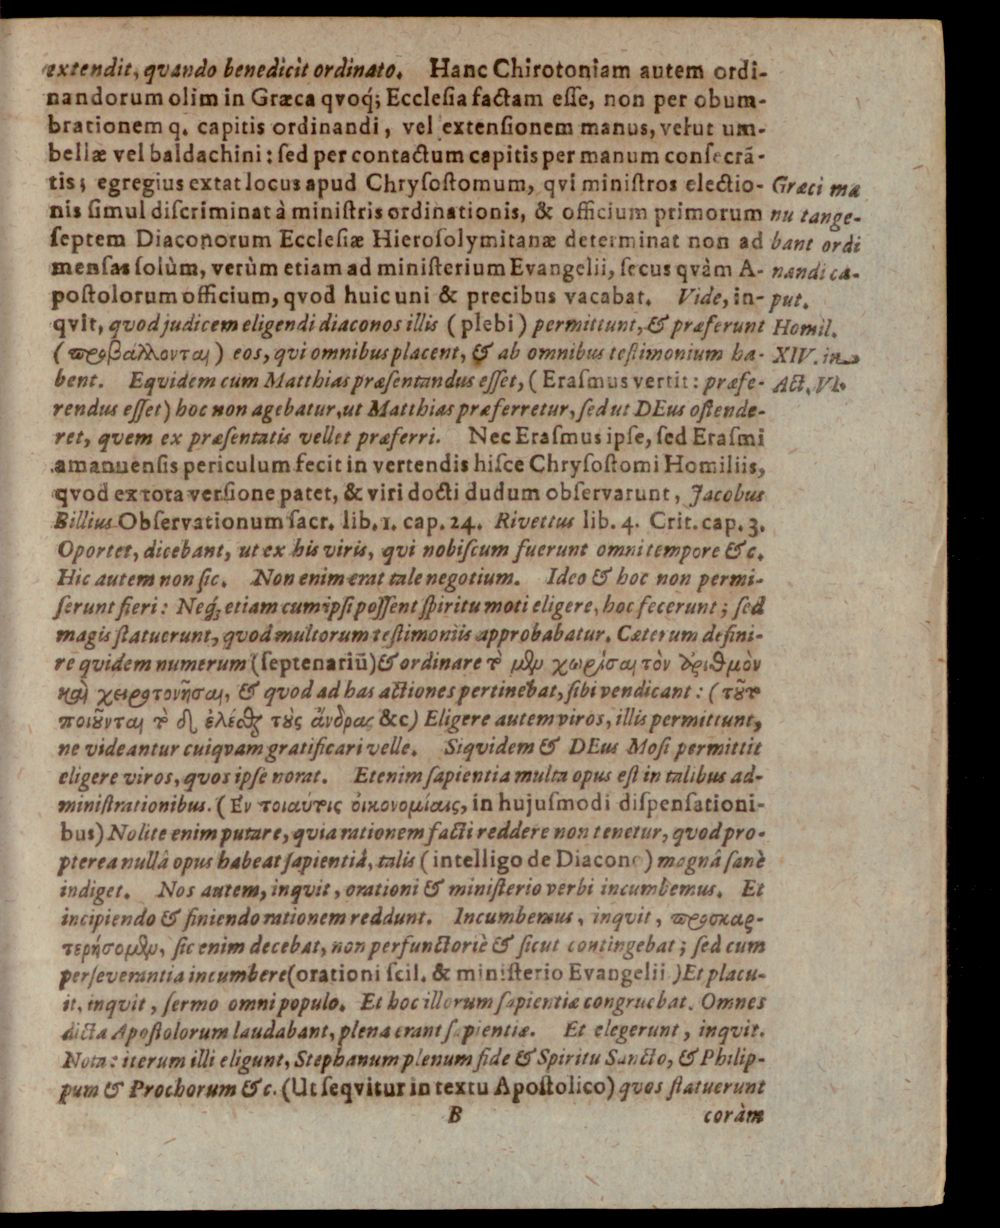 extendit, qvando benedicit ordinato. Hanc Chirotoniam autem ordi-
nandorum olim in Græca qvoq́; Ecclesia factam esse, non per obum-
brationem q. capitis ordinandi, vel extensionem manus, velut um-
bellæ vel baldachini: sed per contactum capitis per manum consecrã-
tis; egregius extat locus apud Chrysostomum, qvi ministros electio-
nis simul discriminat à ministris ordinationis, & officium primorum
septem Diaconorum Ecclesiæ Hierosolymitanæ determinat non ad
mensas solùm, verùm etiam ad ministerium Evangelii, secus qvàm A-
postolorum officium, qvod huic uni & precibus vacabat. Vide, in-
qvit, quod judicem eligendi diaconos illis (plebi) permittunt, & præferunt
(προβάλλονται) eos, qvi omnibus placent, & ab omnibus testimonium ha-
bent. Eqvidem cum Matthias præsentandus esset, (Erasmus vertit: præfe-
rendus esset) hoc non agebatur, ut Matthias præferretur, sed ut DEus ostende-
ret, qvem ex præsentatis vellet præferri. Nec Erasmus ipse, sed Erasmi
amanuensis periculum fecit in vertendis hisce Chrysostomi Homiliis,
qvod ex tota versione patet, & viri docti dudum observarunt, Jacobus
Billius Observationum sacr. lib. 1. cap. 24. Rivettus lib. 4. Crit. cap. 3.
Oportet, dicebant, ut ex his viris, qvi nobiscum fuerunt omni tempore &c.
Hic autem non sic. Non enim erat tale negotium. Ideo & hoc non permi-
serunt fieri: Neq́; etiam cum ipsi possent spiritu moti eligere, hoc fecerunt; sed
magis statuerunt, qvod multorum testimoniis approbabatur. Cæterum defini-
re qvidem numerum (septenariũ) & ordinare τὸ μὲν χωρίσαι τὸν ἀριθμὸν
καὶ χειροτονῆσαι, & qvod ad has actiones pertinebat, sibi vendicant: (τοῦτο
ποιοῦνται τὸ δὲ ἑλέσθαι τοὺς ἄνδρας &c) Eligere autem viros, illis permittunt,
ne videantur cuiqvam gratificari velle. Siqvidem & DEus Mosi permittit
eligere viros, qvos ipse norat. Etenim sapientia multa opus est in talibus ad-
ministrationibus. (Ἐν τοιαύταις οἰκονομίαις, in hujusmodi dispensationi-
bus) Nolite enim putare, qvia rationem facti reddere non tenetur, qvod pro-
pterea nullâ opus habeat sapientiâ, talis (intelligo de Diacono) magnâ sanè
indiget. Nos autem, inqvit, orationi & ministerio verbi incumbemus. Et
incipiendo & finiendo rationem reddunt. Incumbemus, inqvit, προσκαρ-
τερήσομεν, sic enim decebat, non perfunctoriè & sicut contingebat; sed cum
perseverantia incumbere (orationi scil. & ministerio Evangelii) Et placu-
it, inqvit, sermo omni populo. Et hoc illorum sapientiæ congruebat. Omnes
dicta Apostolorum laudabant, plena erant sapientiæ. Et elegerunt, inqvit.
Nota: iterum illi eligunt, Stephanum plenum fide & Spiritu Sancto, & Philip-
pum & Prochorum &c. (Ut seqvitur in textu Apostolico) quos statuerunt
B coràm
Græci ma
nu tange-
bant ordi
nandi ca-
put.
Homil.
XIV. in
Act. VI.